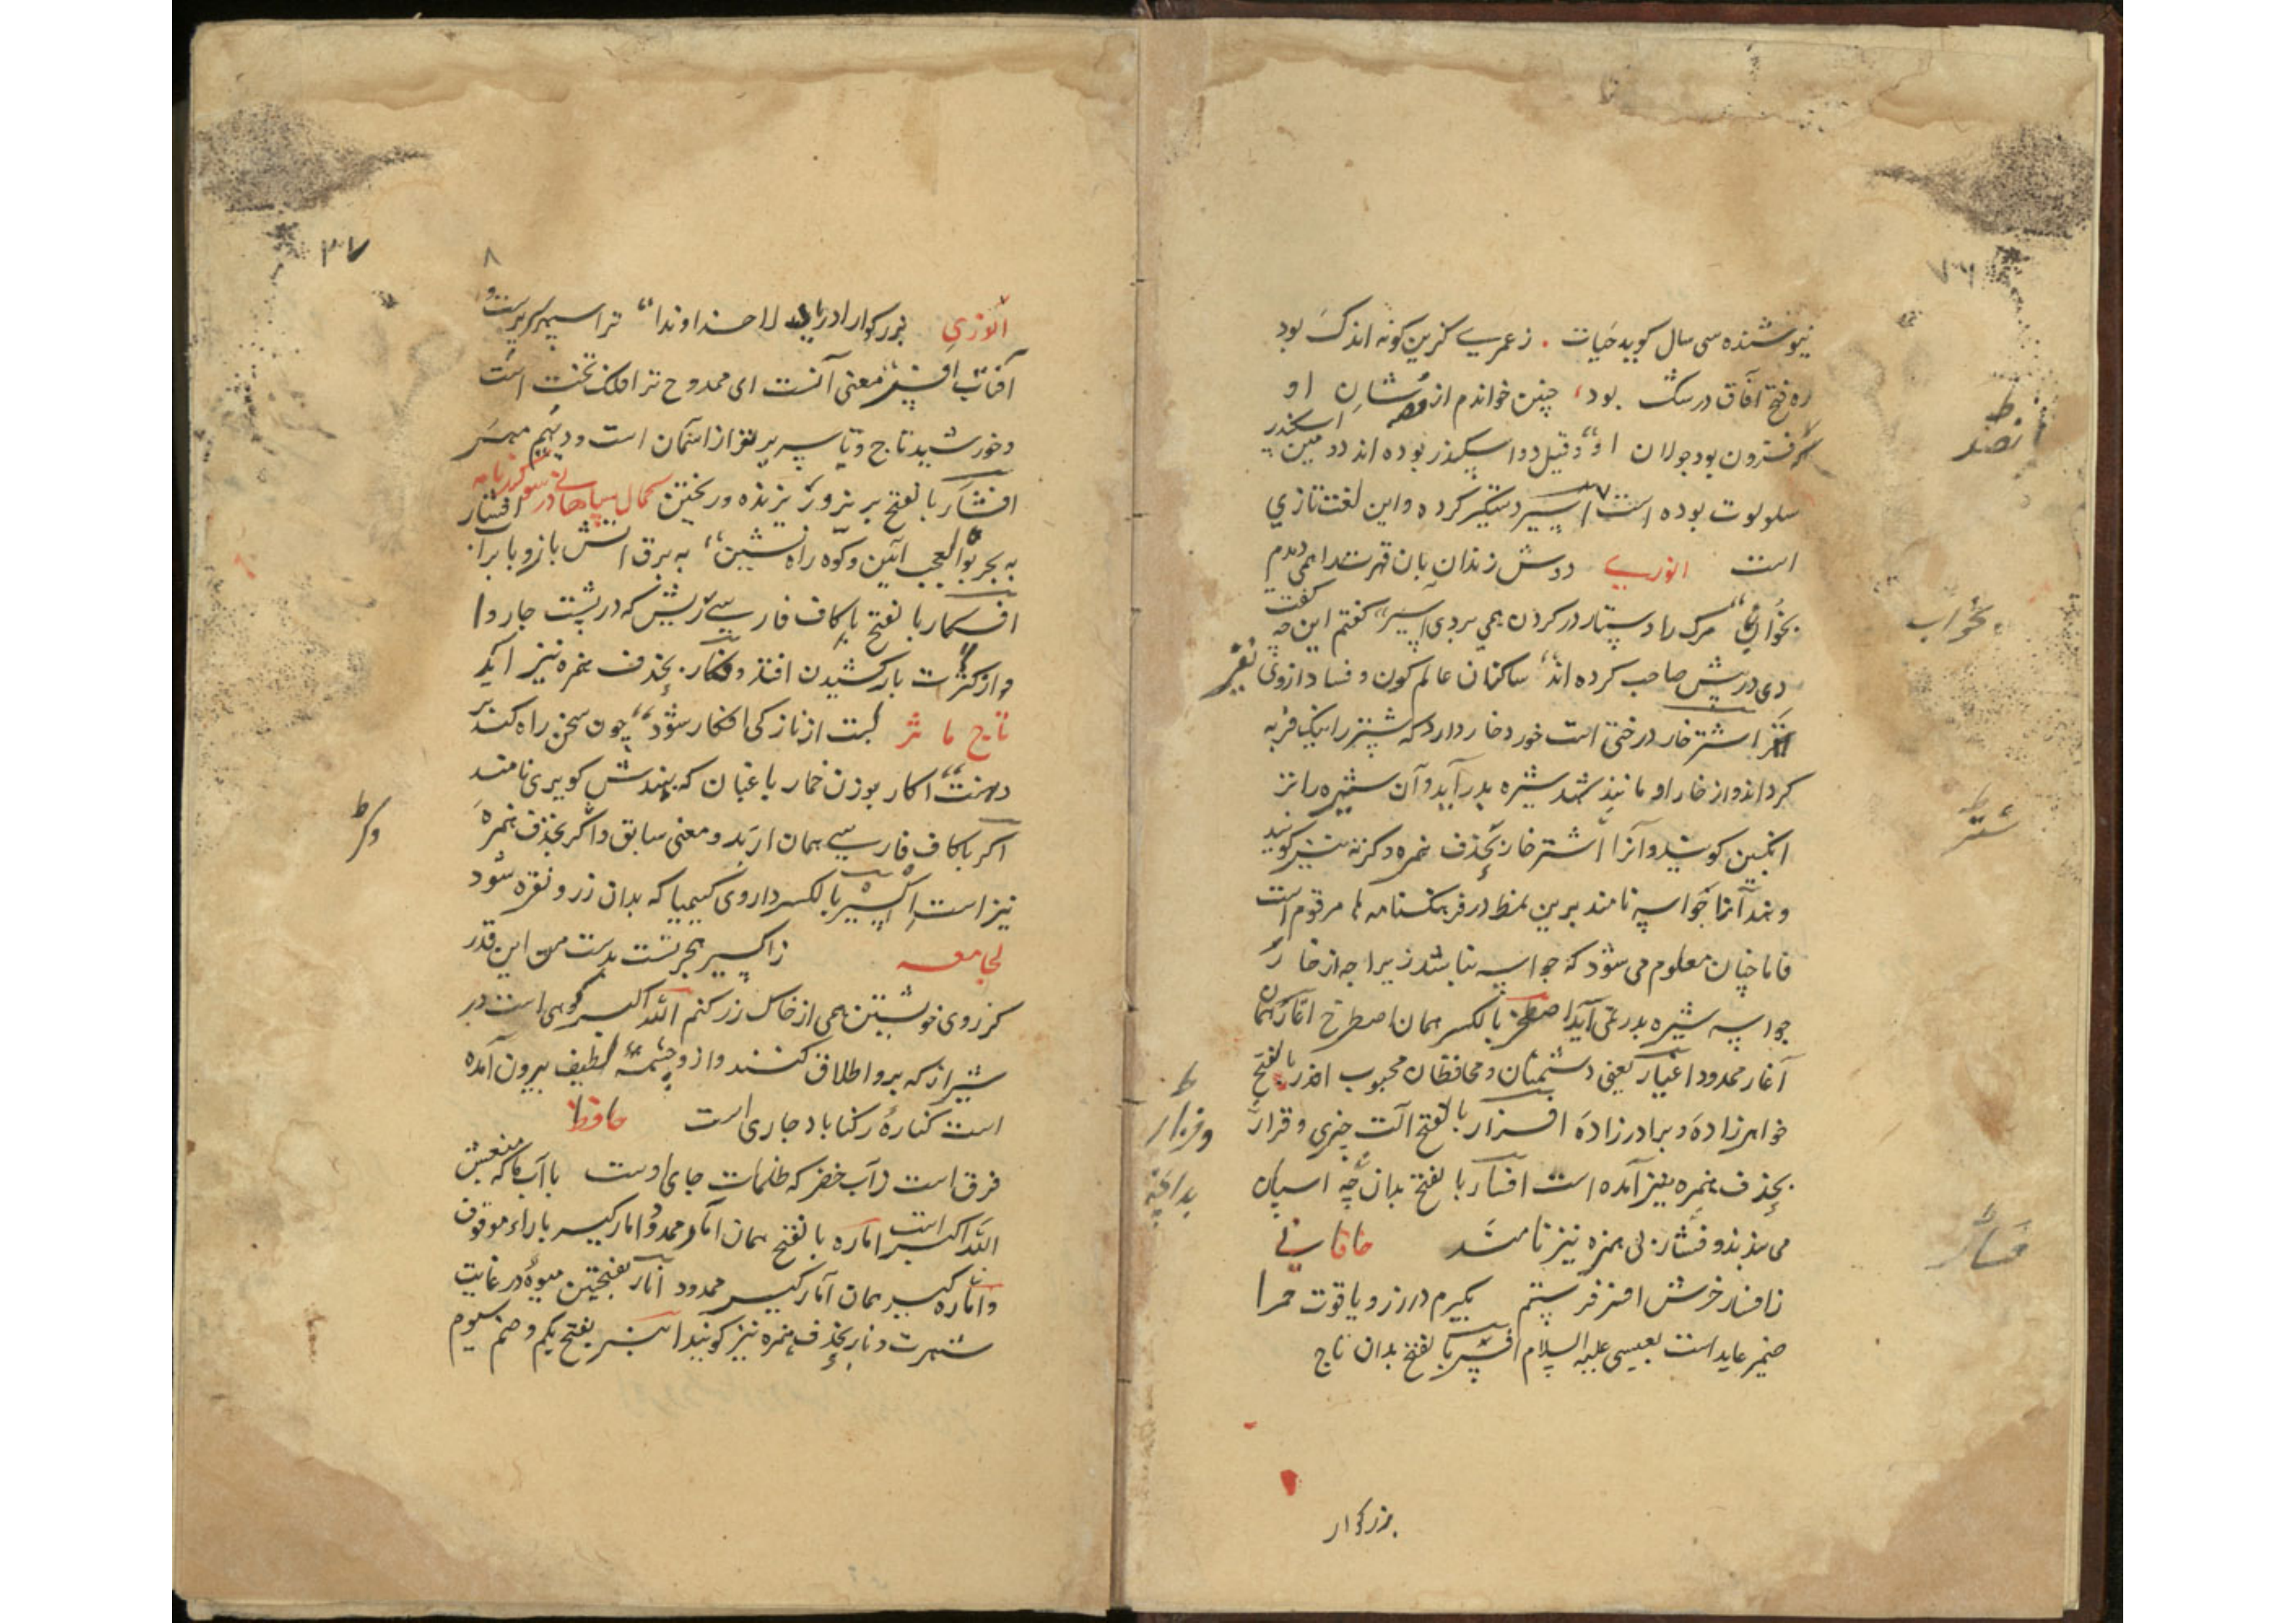 نیوشنده سی سال کوید حیات . ز عمری کزین کونه اندک بود
ره فتح آفاق در سک بود چنین خواندم از قصه شان او
که افزون بود جولان او وقیل دو اسکندر بوده اند دومین اسکندر
سلولوت بوده است اسیر دستکیر کرده و این لغت تازی
است انوری دوش زندان بان قهرت را همی دیدم
بخواب مرک را دستار در کردن همی بردی اسیر کفتم این چه کفت
دی در پیش صاحب کرده اند ساکنان عالم کون و فساد از وی نفیر
اشترخار درختی است خورد خار دارد که شتر را نیک فربه
کرداند و از خار او مانند شهد شیره بدر آید و آن شیره را نز
انکبین کویند و آنرا اشترخار بحذف همزه و کزنه نیز کویند
و هند آنرا جواسه نامند برین نمط در فرهنکنامه ها مرقوم است
فاما چنان معلوم می شود که جواسه نباشد زیرا چه از خار
جواسه شیره بدر نمی آید اصطخر بالکسر همان اصطرخ اغار همان
آغار ممدود اغیار یعنی دشمنان و محافظان محبوب افدر بالفتح
خواهرزاده و برادرزاده افزار بالفتح آلت چیزی و قرار
بحذف همزه نیز آمده است افسار بالفتح بدان چه اسپان
می بندند و فسار بی همزه نیز نامند خاقانی
ز افسار خرش افسر فرستم بکیرم در زر و یاقوت حمرا
ضمیر عاید است بعیسی علیه السلام افسر بالفتح بدان تاج
بزرکوار
بخواب
شتر
وفزار
بداچه
فسار
۳۷
۸
انوری بزرکوارا دریا دلا خداوندا ترا سپهر سریرست و
آفتاب افسر معنی آنست ای ممدوح ترا فلک تخت است
و خورشید تاج و یا سریر تو از آسمان است و دیهیم مهر
افشار بالفتح بریزو و ریزنده و ریختن کمال سپاهانی در سوکند نامه افشار
به بحر بوالعجب آئین و کوه راه نشین به برق آتش بازو با براب
افکار بالفتح باکاف فارسی ریش که در پشت جاروا
از کثرت بار کشیدن افتد و فکار بحذف همزه نیز ایکر
تاج ماثر لبت از نازکی افکار شود چون سخن راه کند بر
دهنت اکار بوزن خمار باغبان که بهندش کویری نامند
اکر باکاف فارسی همان ار بد و معنی سابق و اکر بحذف همزه
نیز است اکسیر بالکسر داروی کیمیا که بدان زر و نقره شود
لجامعه ز اکسیر هجرتست بدست من این قدر
کز روی خویشتن همی از خاک زر کنم الله اکبر کوهی است در
شیراز که برو اطلاق کنند و از و چشمه لطیف بیرون آمده
است کناره رکناباد جاری است حافظ
فرق است ز آب خضر که ظلمات جای اوست با آب ما که منبعش
الله اکبر است اماره بالفتح همان آمار ممدود و امارکیر با راء موقوف
و اماره کیر همان آمارکیر ممدود انار بفتحتین میوه در غایت
شهرت و نار بحذف همزه نیز کویند انیسر بفتح یکم و ضم سیوم
وکر